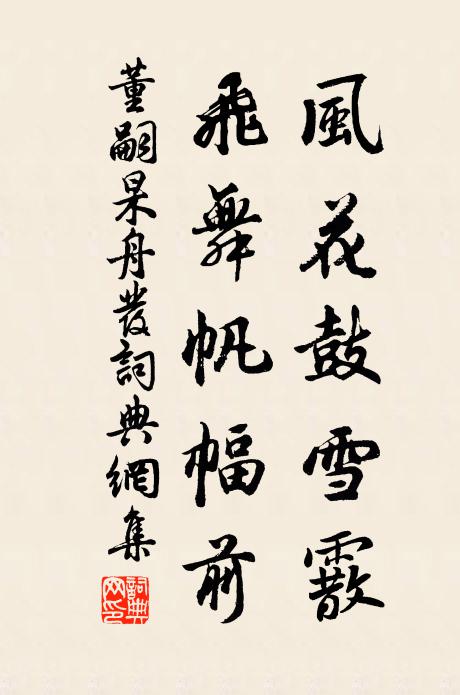 風花鼓雪霰
飛舞帆幅前
董嗣杲舟發詞典網集
詞典網印